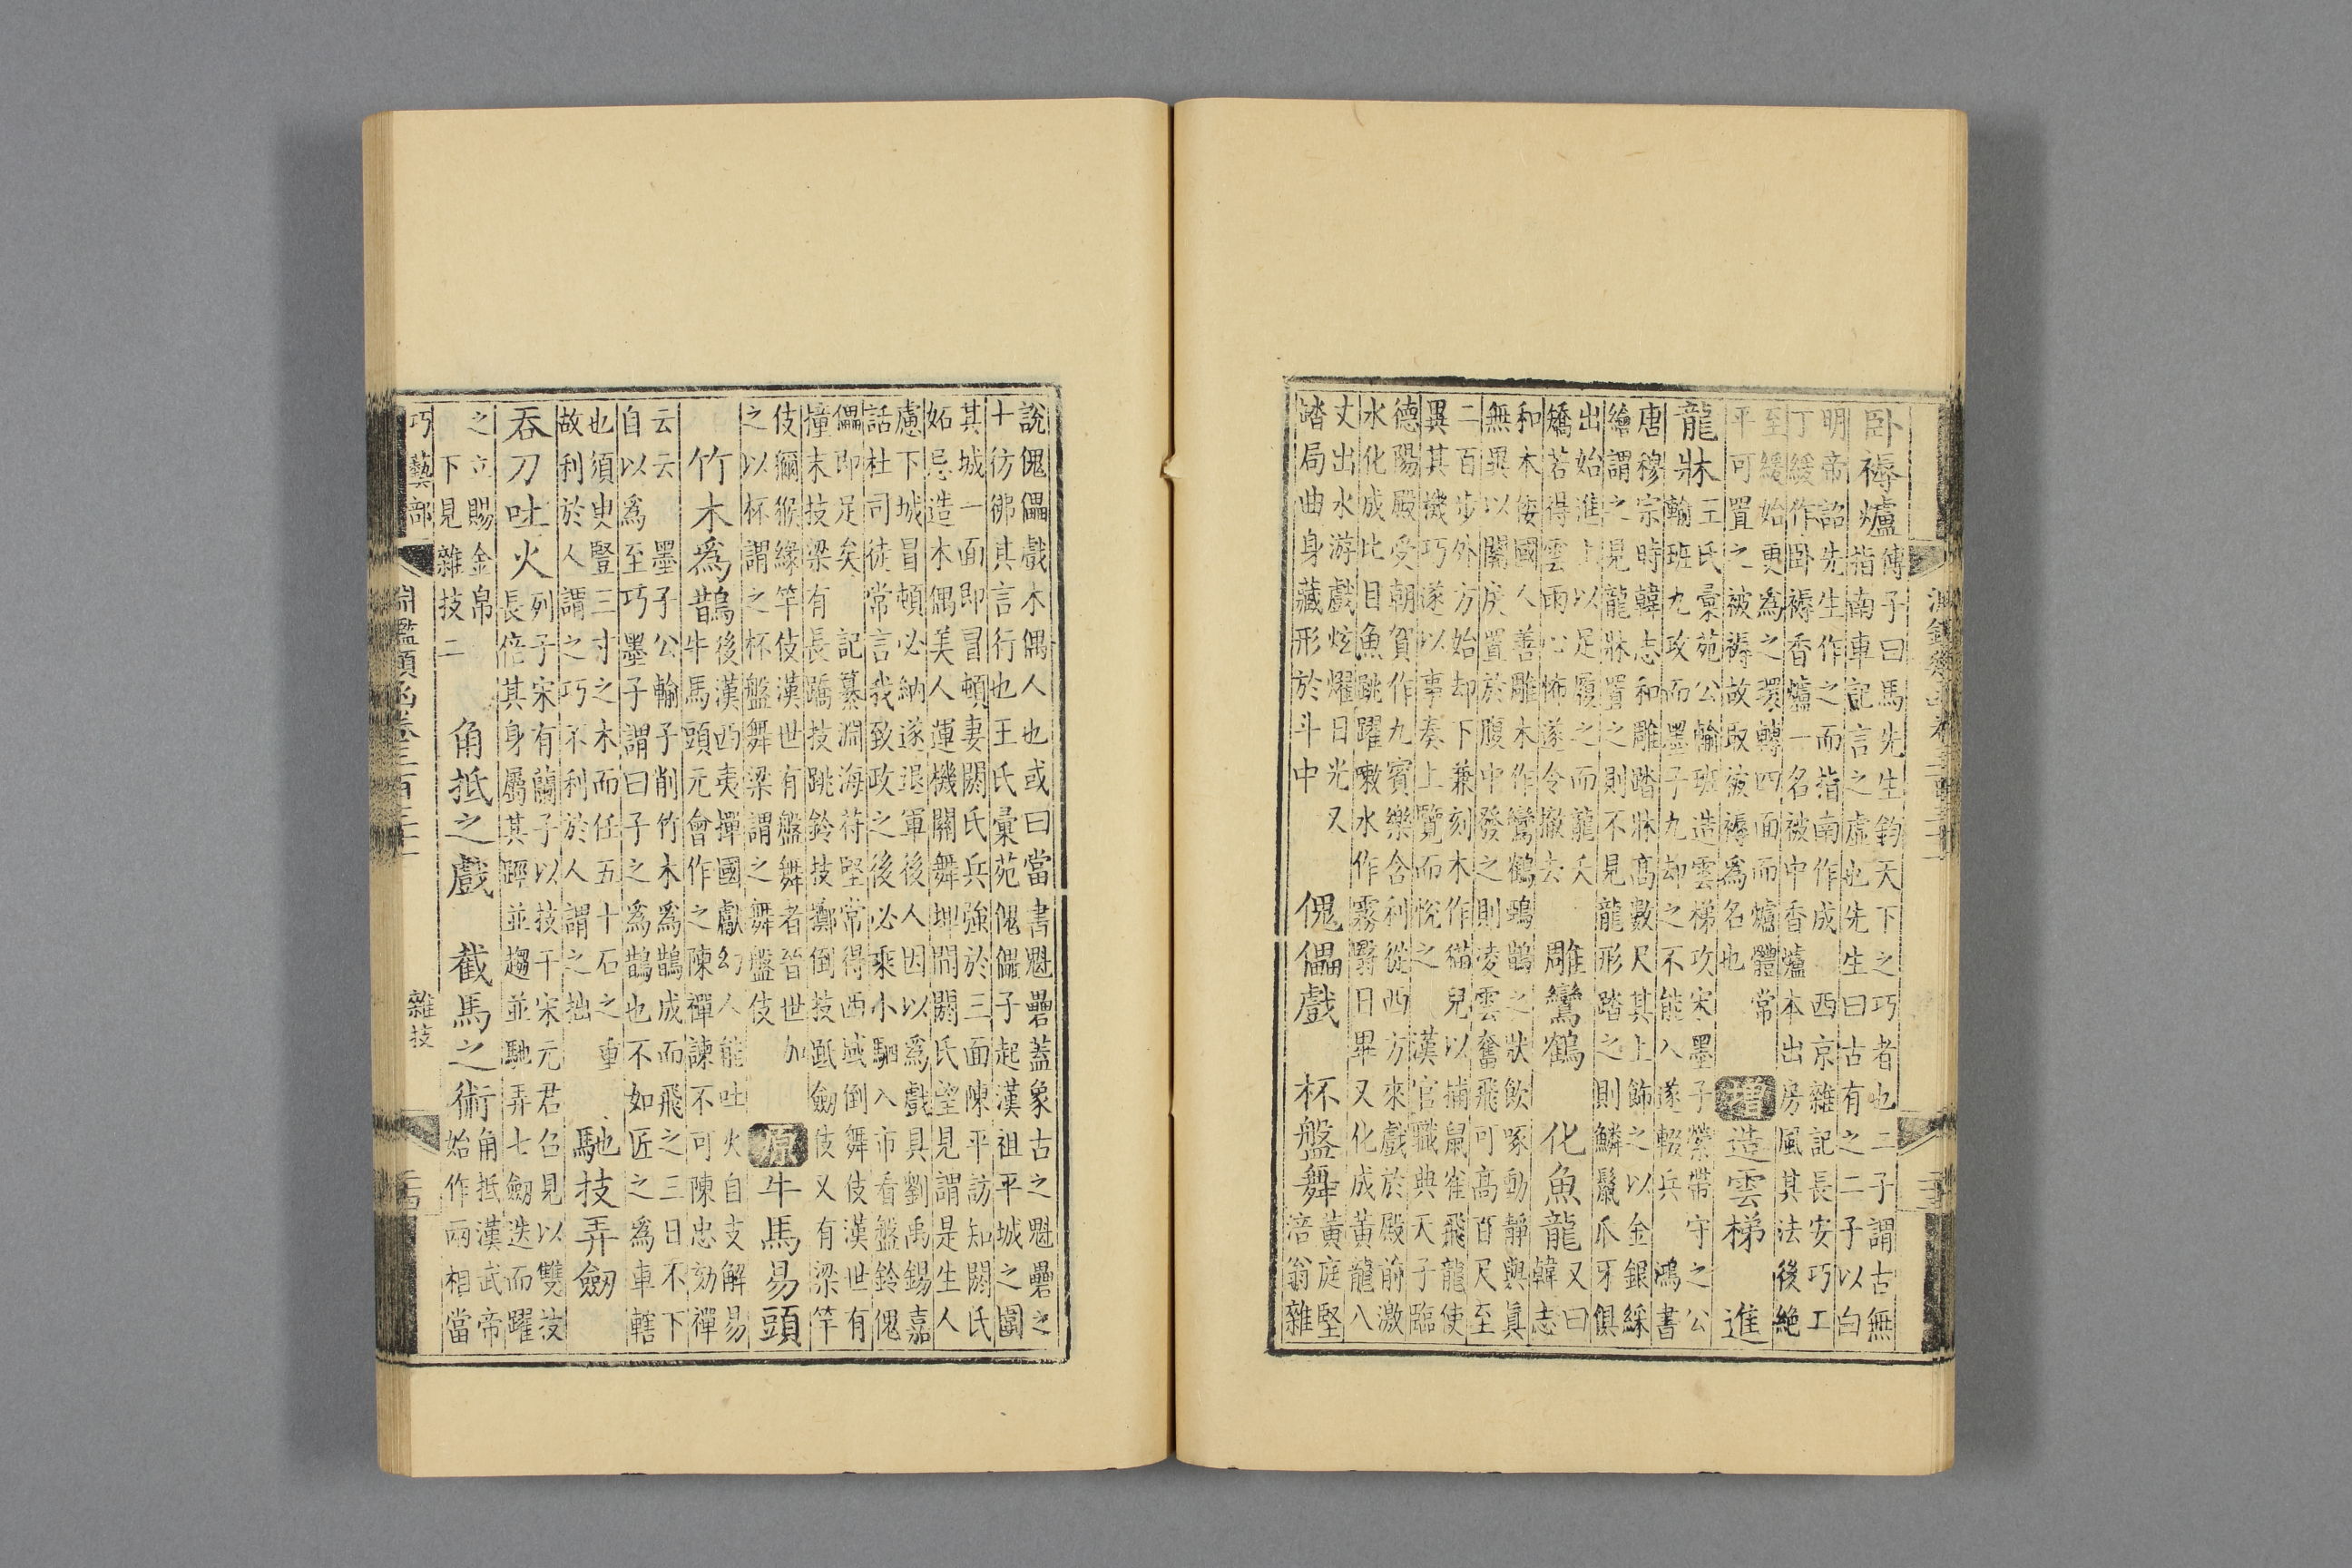 卧褥爐
傅子曰馬先生鈞天下之巧者也二子謂古無
指南車記言之虛也先生曰古有之二子以白
明帝詔先生作之而指南作成 西京雜記長安巧工
丁緩作卧褥香爐一名被中香爐本出房風其法後絶
至緩始更爲之環轉四面而爐體常
平可置之被褥故取被褥爲名也
增 造雲梯 進
龍牀
王氏彙苑公輸班造雲梯攻宋墨子縈帶守之公
輸班九攻而墨子九却之不能入遂輟兵 鴻書
唐穆宗時韓志和雕踏牀高數尺其上飾之以金銀綵
繪謂之見龍牀置之則不見龍形踏之則鱗鬣爪牙俱
出始進上以足履之而龍夭
矯若得雲雨心怖遂令撤去
雕鸞鶴 化魚龍
又曰
韓志
和本倭國人善雕木作鸞鶴鴉鵲之狀飲啄動靜與眞
無異以關戾置於腹中發之則凌雲奮飛可高百尺至
二百步外方始却下兼刻木作猫兒以捕鼠雀飛龍使
異其機巧遂以事奏上覽而悅之 漢官職典天子臨
德陽殿受朝賀作九賓樂含利從西方來戲於殿前激
水化成比目魚跳躍嗽水作霧翳日畢又化成黃龍八
丈出水游戲炫燿日光又
踏局曲身藏形於斗中
傀儡戲 杯盤舞
黃庭堅
涪翁雜
說傀儡戲木偶人也或曰當書魁礨蓋象古之魁礨之
十彷彿其言行也王氏彙苑傀儡子起漢祖平城之圍
其城一面即冒頓妻閼氏兵強於三面陳平訪知閼氏
妬忌造木偶美人運機關舞埤間閼氏望見謂是生人
慮下城冒頓必納遂退軍後人因以爲戲具劉禹錫嘉
話杜司徒常言我致政之後必乘小駟入市看盤鈴傀
儡即足矣 記纂淵海苻堅常得西域倒舞伎漢世有
撞末技梁有長蹻技跳鈴技擲倒技跳劒伎又有梁竿
伎獮猴緣竿伎漢世有盤舞者晉世加
之以杯謂之杯盤舞梁謂之舞盤伎
原 牛馬易頭
竹木爲鵲
後漢西夷撣國獻幻人能吐火自支解易
牛馬頭元會作之陳禪諫不可陳忠劾禪
云云 墨子公輸子削竹木爲鵲成而飛之三日不下
自以爲至巧墨子謂曰子之爲鵲也不如匠之爲車轄
也須臾豎三寸之木而任五十石之重
故利於人謂之巧不利於人謂之拙
馳技弄劒
吞刀吐火
列子宋有蘭子以技干宋元君召見以雙技
長倍其身屬其踁並趨並馳弄七劒迭而躍
之立賜金帛
下見雜技二
角抵之戲 截馬之術
角抵漢武帝
始作兩相當
巧藝部 淵鑑類函卷三百二十一 雜技